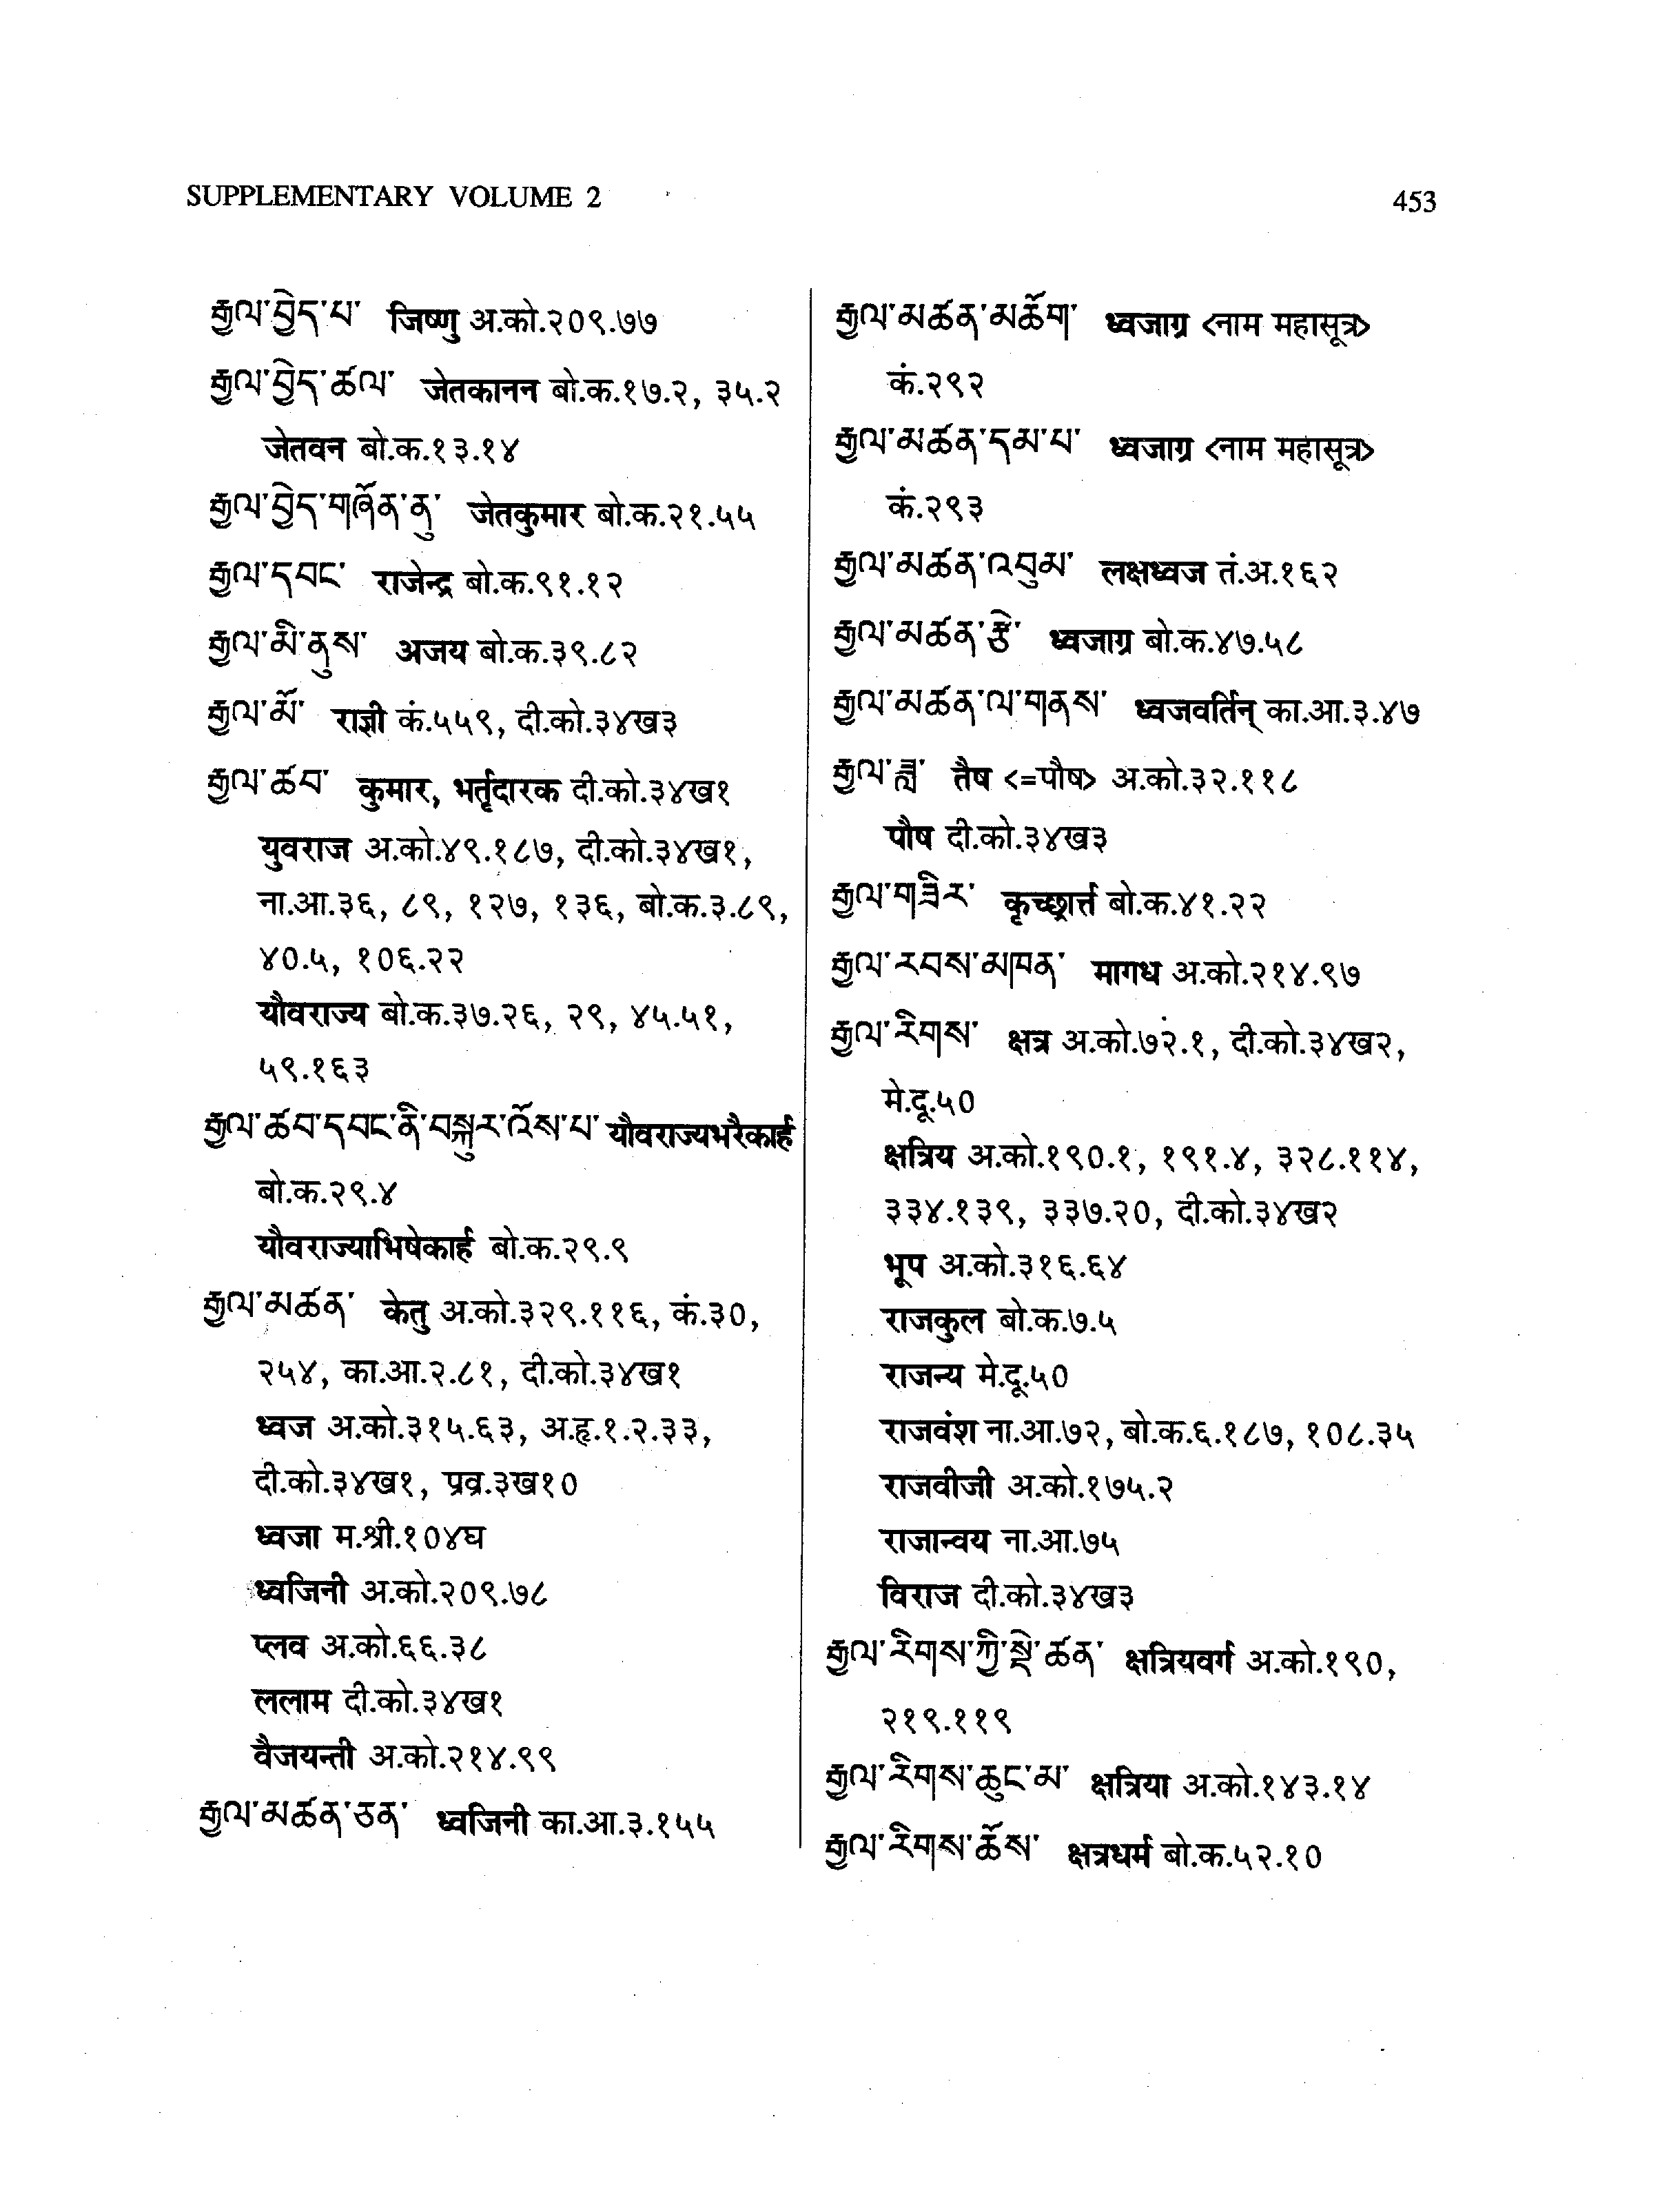 SUPPLEMENTARY VOLUME 2
453
རྒྱལ་བྱེད་པ་ जिष्णु अ.को.२०९.७७
རྒྱལ་བྱེད་ཚལ་ जेतकानन बो.क.१७.२, ३५.२
जेतवन बो.क.१३.१४
རྒྱལ་བྱེད་གཞོན་ནུ་ जेतकुमार बो.क.२१.५५
རྒྱལ་དབང་ राजेन्द्र बो.क.९१.१२
རྒྱལ་མི་ནུས་ अजय बो.क.३९.८२
རྒྱལ་མོ་ राज्ञी कं.५५९, दी.को.३४ख३
རྒྱལ་ཚབ་ कुमार, भर्तृदारक दी.को.३४ख१
युवराज अ.को.४९.१८७, दी.को.३४ख१,
ना.आ.३६, ८९, १२७, १३६, बो.क.३.८९,
४०.५, १०६.२२
यौवराज्य बो.क.३७.२६, २९, ४५.५१,
५९.१६३
རྒྱལ་ཚབ་དབང་ནི་བསྐུར་འོས་པ་ यौवराज्यभरैकार्ह
बो.क.२९.४
यौवराज्याभिषेकार्ह बो.क.२९.९
རྒྱལ་མཚན་ केतु अ.को.३२९.११६, कं.३०,
२५४, का.आ.२.८१, दी.को.३४ख१
ध्वज अ.को.३१५.६३, अ.हृ.१.२.३३,
दी.को.३४ख१, प्रव्र.३ख१०
ध्वजा म.श्री.१०४घ
ध्वजिनी अ.को.२०९.७८
प्लव अ.को.६६.३८
ललाम दी.को.३४ख१
वैजयन्ती अ.को.२१४.९९
རྒྱལ་མཚན་ཅན་ ध्वजिनी का.आ.३.१५५
རྒྱལ་མཚན་མཆོག་ ध्वजाग्र <नाम महासूत्र>
कं.२९२
རྒྱལ་མཚན་དམ་པ་ ध्वजाग्र <नाम महासूत्र>
कं.२९३
རྒྱལ་མཚན་འབུམ་ लक्षध्वज तं.अ.१६२
རྒྱལ་མཚན་རྩེ་ ध्वजाग्र बो.क.४७.५८
རྒྱལ་མཚན་ལ་གནས་ ध्वजवर्तिन् का.आ.३.४७
རྒྱལ་ཟླ་ तैष <=पौष> अ.को.३२.११८
पौष दी.को.३४ख३
རྒྱལ་གཟིར་ कृच्छ्रार्त्त बो.क.४१.२२
རྒྱལ་རབས་མཁན་ मागध अ.को.२१४.९७
རྒྱལ་རིགས་ क्षत्र अ.को.७२.१, दी.को.३४ख२,
मे.दू.५०
क्षत्रिय अ.को.१९०.१, १९१.४, ३२८.११४,
३३४.१३९, ३३७.२०, दी.को.३४ख२
भूप अ.को.३१६.६४
राजकुल बो.क.७.५
राजन्य मे.दू.५०
राजवंश ना.आ.७२, बो.क.६.१८७, १०८.३५
राजवीजी अ.को.१७५.२
राजान्वय ना.आ.७५
विराज दी.को.३४ख३
རྒྱལ་རིགས་ཀྱི་སྡེ་ཚན་ क्षत्रियवर्ग अ.को.१९०,
२१९.११९
རྒྱལ་རིགས་ཆུང་མ་ क्षत्रिया अ.को.१४३.१४
རྒྱལ་རིགས་ཆོས་ क्षत्रधर्म बो.क.५२.१०